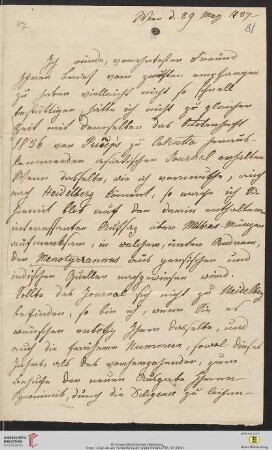 Wien d. 29 May 1837
81
Ich würde, verehrtester Freund
Ihren Brief vom zwölften empfangen
zu haben vielleicht nicht so schnell
bestättigen, hätte ich nicht zu gleicher
Zeit mit demselben das Octoberheft
1836 von Prinseps zu Calcutta heraus-
kommenden asiatischen Journal erhalten
Wenn dasselbe, wie ich vermuthe, auch
nach Heidelberg kömmt, so mache ich Sie
hiemit bloß auf den darin enthaltenen
interessanten Aufsatz über Münzen
aufmerksam, in welchem, unter Anderem,
der aus persischen und
indischen Quellen nachgewiesen wird.
Sollte das Journal sich nicht zu Heidelberg
befinden, so bin ich, wenn Sie es
wünschen erbötig Ihnen dasselbe, und
auch die früheren Nummern, sowol dieses
Jahres, als des vorhergehenden, zum
Behufe der neuen Ausgabe Ihrer
durch die Diligence zu
UNIVERSITÄTS-
BIBLIOTHEK
HEIDELBERG